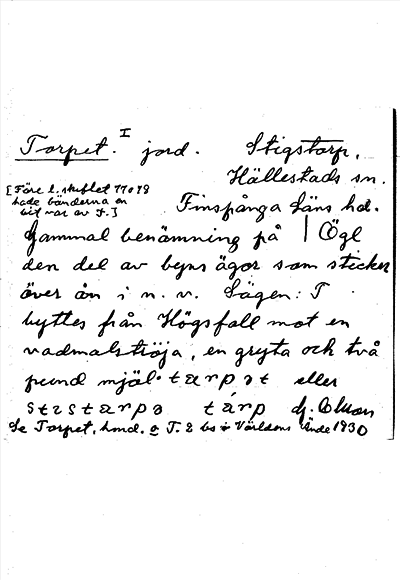 Torpet. I jord. Stigstorp,
Hällestads sn.
[Före l. skiftet 1798
hade bönderna en
bit var av T.]
Finspånga läns hd.
Gammal benämning på | Ögl
den del av byns ägor som sticker
över ån i n. v. Sägen: T
byttes från Högsfall mot en
vadmalströja, en gryta och två
pund mjöl. tarpət eller
stɩstarpə tárp
Se Torpet, hmd. o T. 2 bs
Världens Ände 1930